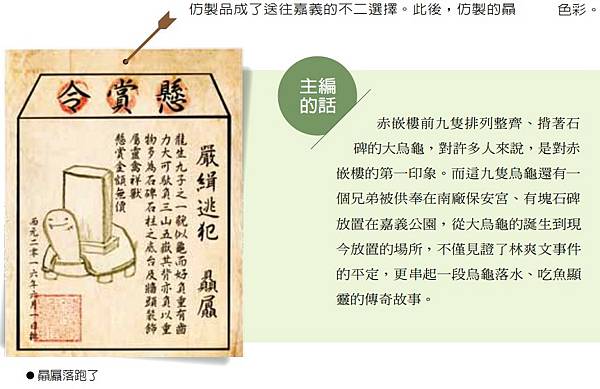 仿製品成了送往嘉義的不二選擇。此後，仿製的贔
色彩。
懸賞令
嚴緝逃犯 贔屭
龍生九子之一貌似龜而好負重有齒
力大可馱負三山五嶽其背亦負以重
物多為石碑石柱之底台及牆頭裝飾
屬靈禽祥獸
懸賞金額無價
西元二零一六年六月一日
●贔屭落跑了
主編
的話
赤嵌樓前九隻排列整齊、揹著石
碑的大烏龜，對許多人來說，是對赤
嵌樓的第一印象。而這九隻烏龜還有一
個兄弟被供奉在南廠保安宮、有塊石碑
放置在嘉義公園，從大烏龜的誕生到現
今放置的場所，不僅見證了林爽文事件
的平定，更串起一段烏龜落水、吃魚顯
靈的傳奇故事。